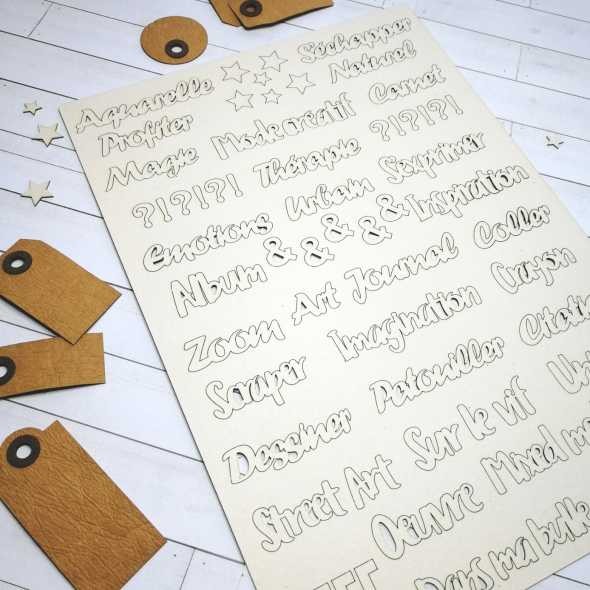 Aquarelle S'échapper
Profiter Naturel
Magie Mode créatif Carnet
?!?!?! Thérapie ?!?!?!
Emotions Urbain S'exprimer
Album & & & & & Inspiration
Zoom Art Journal Coller
Scraper Imagination Crayon
Dessiner Patouiller
Street Art Sur le vif
Oeuvre Mixed
Dans ma bulle